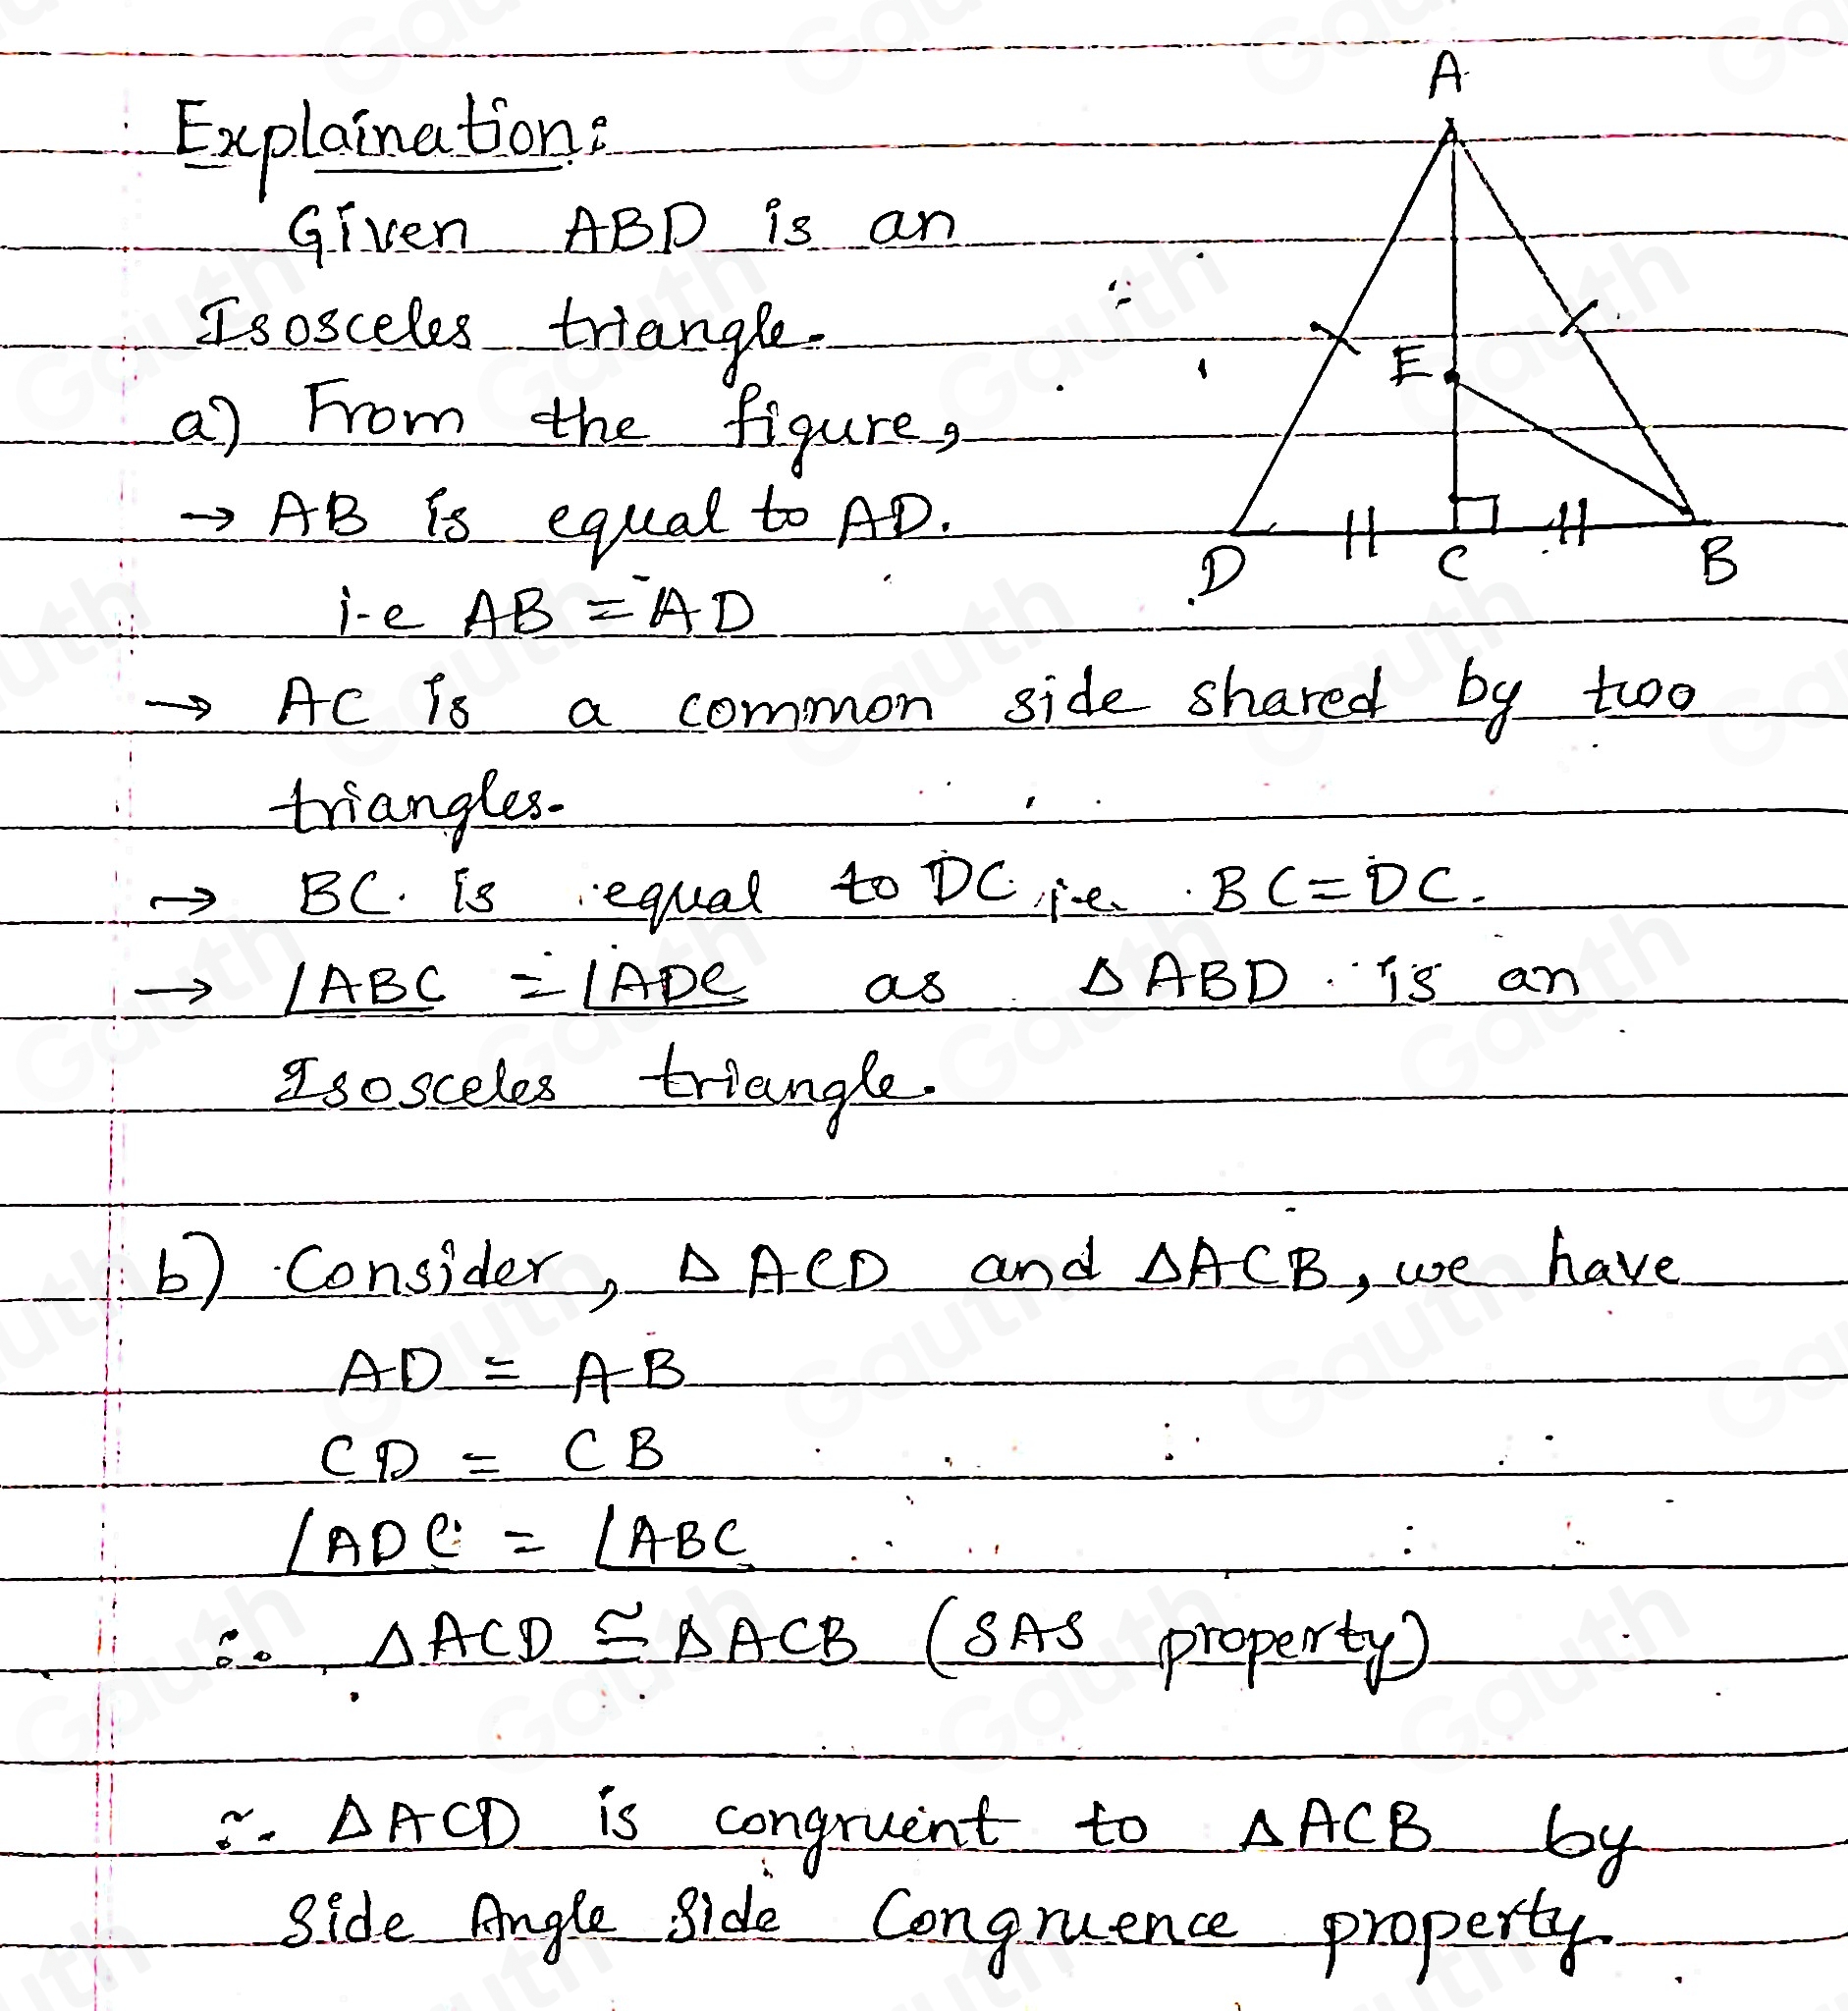 Explaination:
Given ABD is an
Isosceles triangle.
a) From the figure,
→ AB is equal to AD.
i.e AB = AD
→ AC is a common side shared by two
triangles.
→ BC is equal to DC i.e. BC = DC.
→ ∠ABC = ∠ADC as Δ ABD is an
Isosceles triangle.
A
E
D
C
B
b) Consider, Δ ACD and ΔACB, we have
AD = AB
CD = CB
∠ADC = ∠ABC
∴ ΔACD ≅ ΔACB (SAS property)
∴ ΔACD is congruent to ΔACB by
Side Angle Side Congruence property.
Gauth